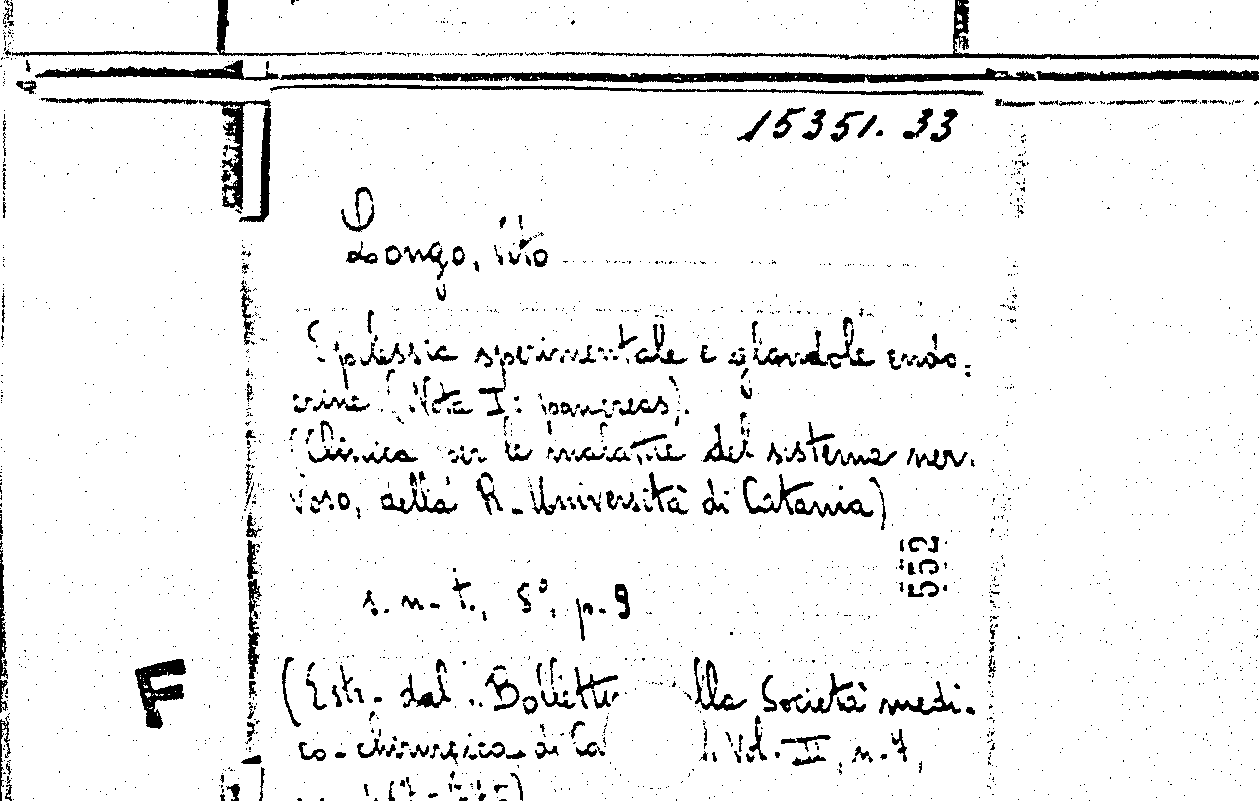 15351.33
Longo, Vito
Epilessia sperimentale e glandole endo=
crine (Nota I: pancreas).
(Clinica per le malattie del sistema ner-
voso, della R. Università di Catania)
552
s. n. t., 8°, p. 9
F
(Estr. dal "Bollettino lla Società medi-
co-chirurgica di Ca Vol. III, n. 7,